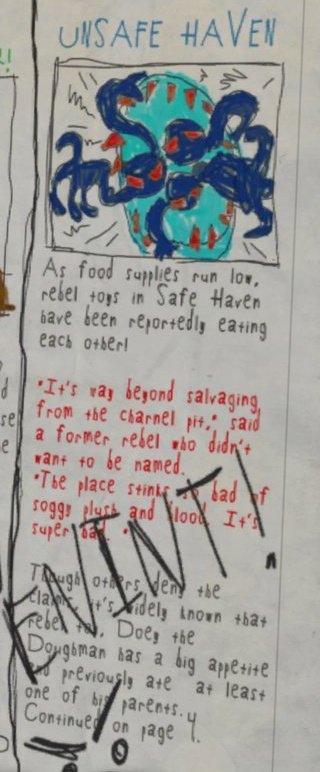 UNSAFE HAVEN
As food supplies run low,
rebel toys in Safe Haven
have been reportedly eating
each other!
"It's way beyond salvaging
from the charnel pit," said
a former rebel who didn't
want to be named.
"The place stinks so bad of
soggy plush and blood. It's
super bad."
Though others deny the
claims, it's widely known that
rebel toy, Doey the
Doughman has a big appetite
previously ate at least
one of his parents.
Continued on page 4.